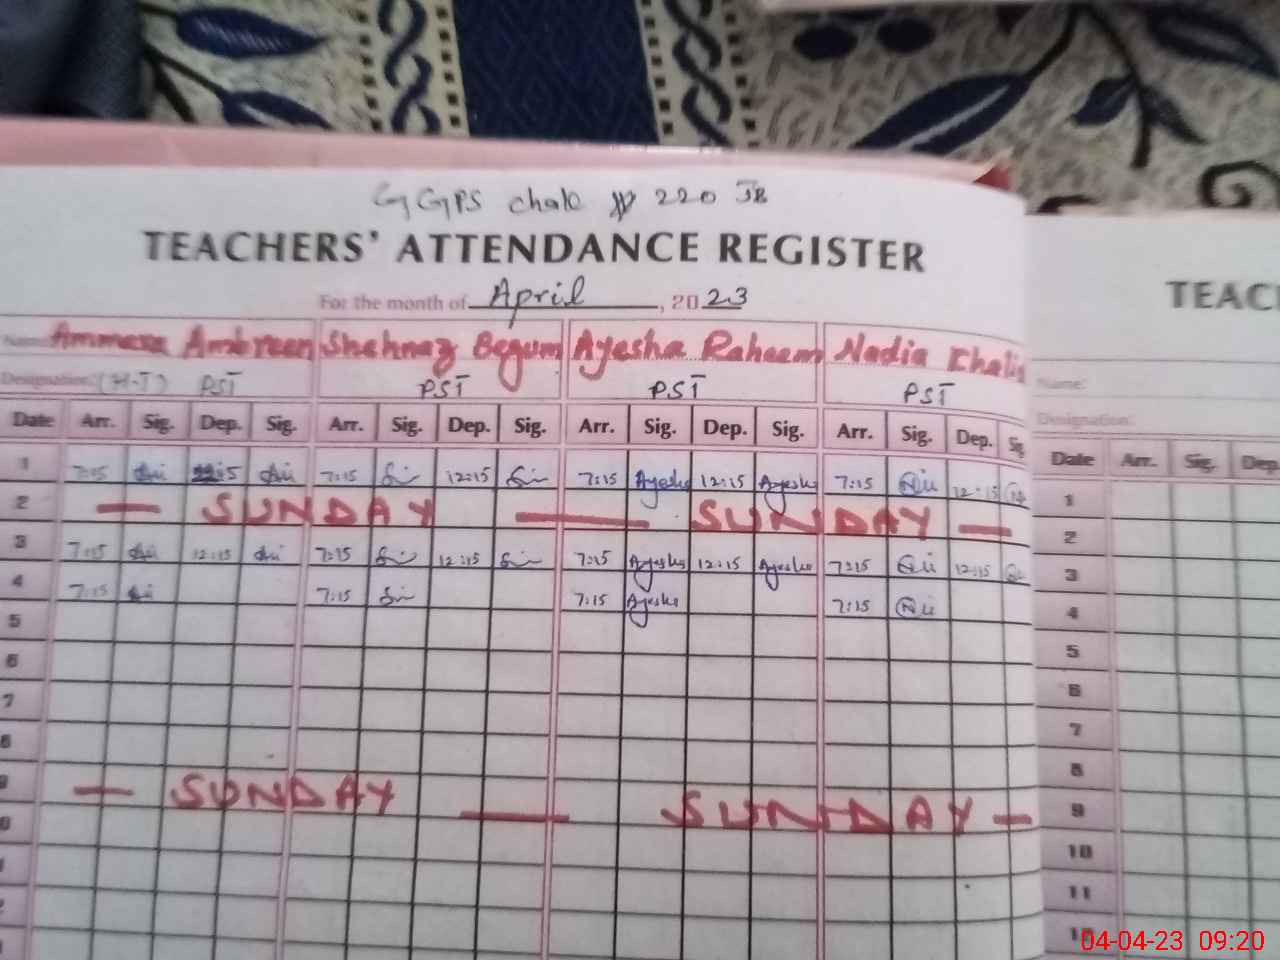 GGPS chak 220 JB
TEACHERS' ATTENDANCE REGISTER
For the month of April, 2023
Name: Ammara Ambreen Shehnaz Begum Ayesha Raheem Nadia Khalid
Designation: (H-T) PST PST PST PST
Date Arr. Sig. Dep. Sig. Arr. Sig. Dep. Sig. Arr. Sig. Dep. Sig. Arr. Sig. Dep. Sig
1 7:15 12:15 7:15 12:15 7:15 Ayesha 12:15 Ayesha 7:15 12:15
2 — SUNDAY — — SUNDAY —
3 7:15 12:15 7:15 12:15 7:15 Ayesha 12:15 Ayesha 7:15 12:15
4 7:15 7:15 7:15 Ayesha 7:15
5
6
7
8
9 — SUNDAY — SUNDAY —
TEAC
Name:
Designation:
Date Arr. Sig. Dep
1
2
3
4
5
6
7
8
9
10
11
04-04-23 09:20